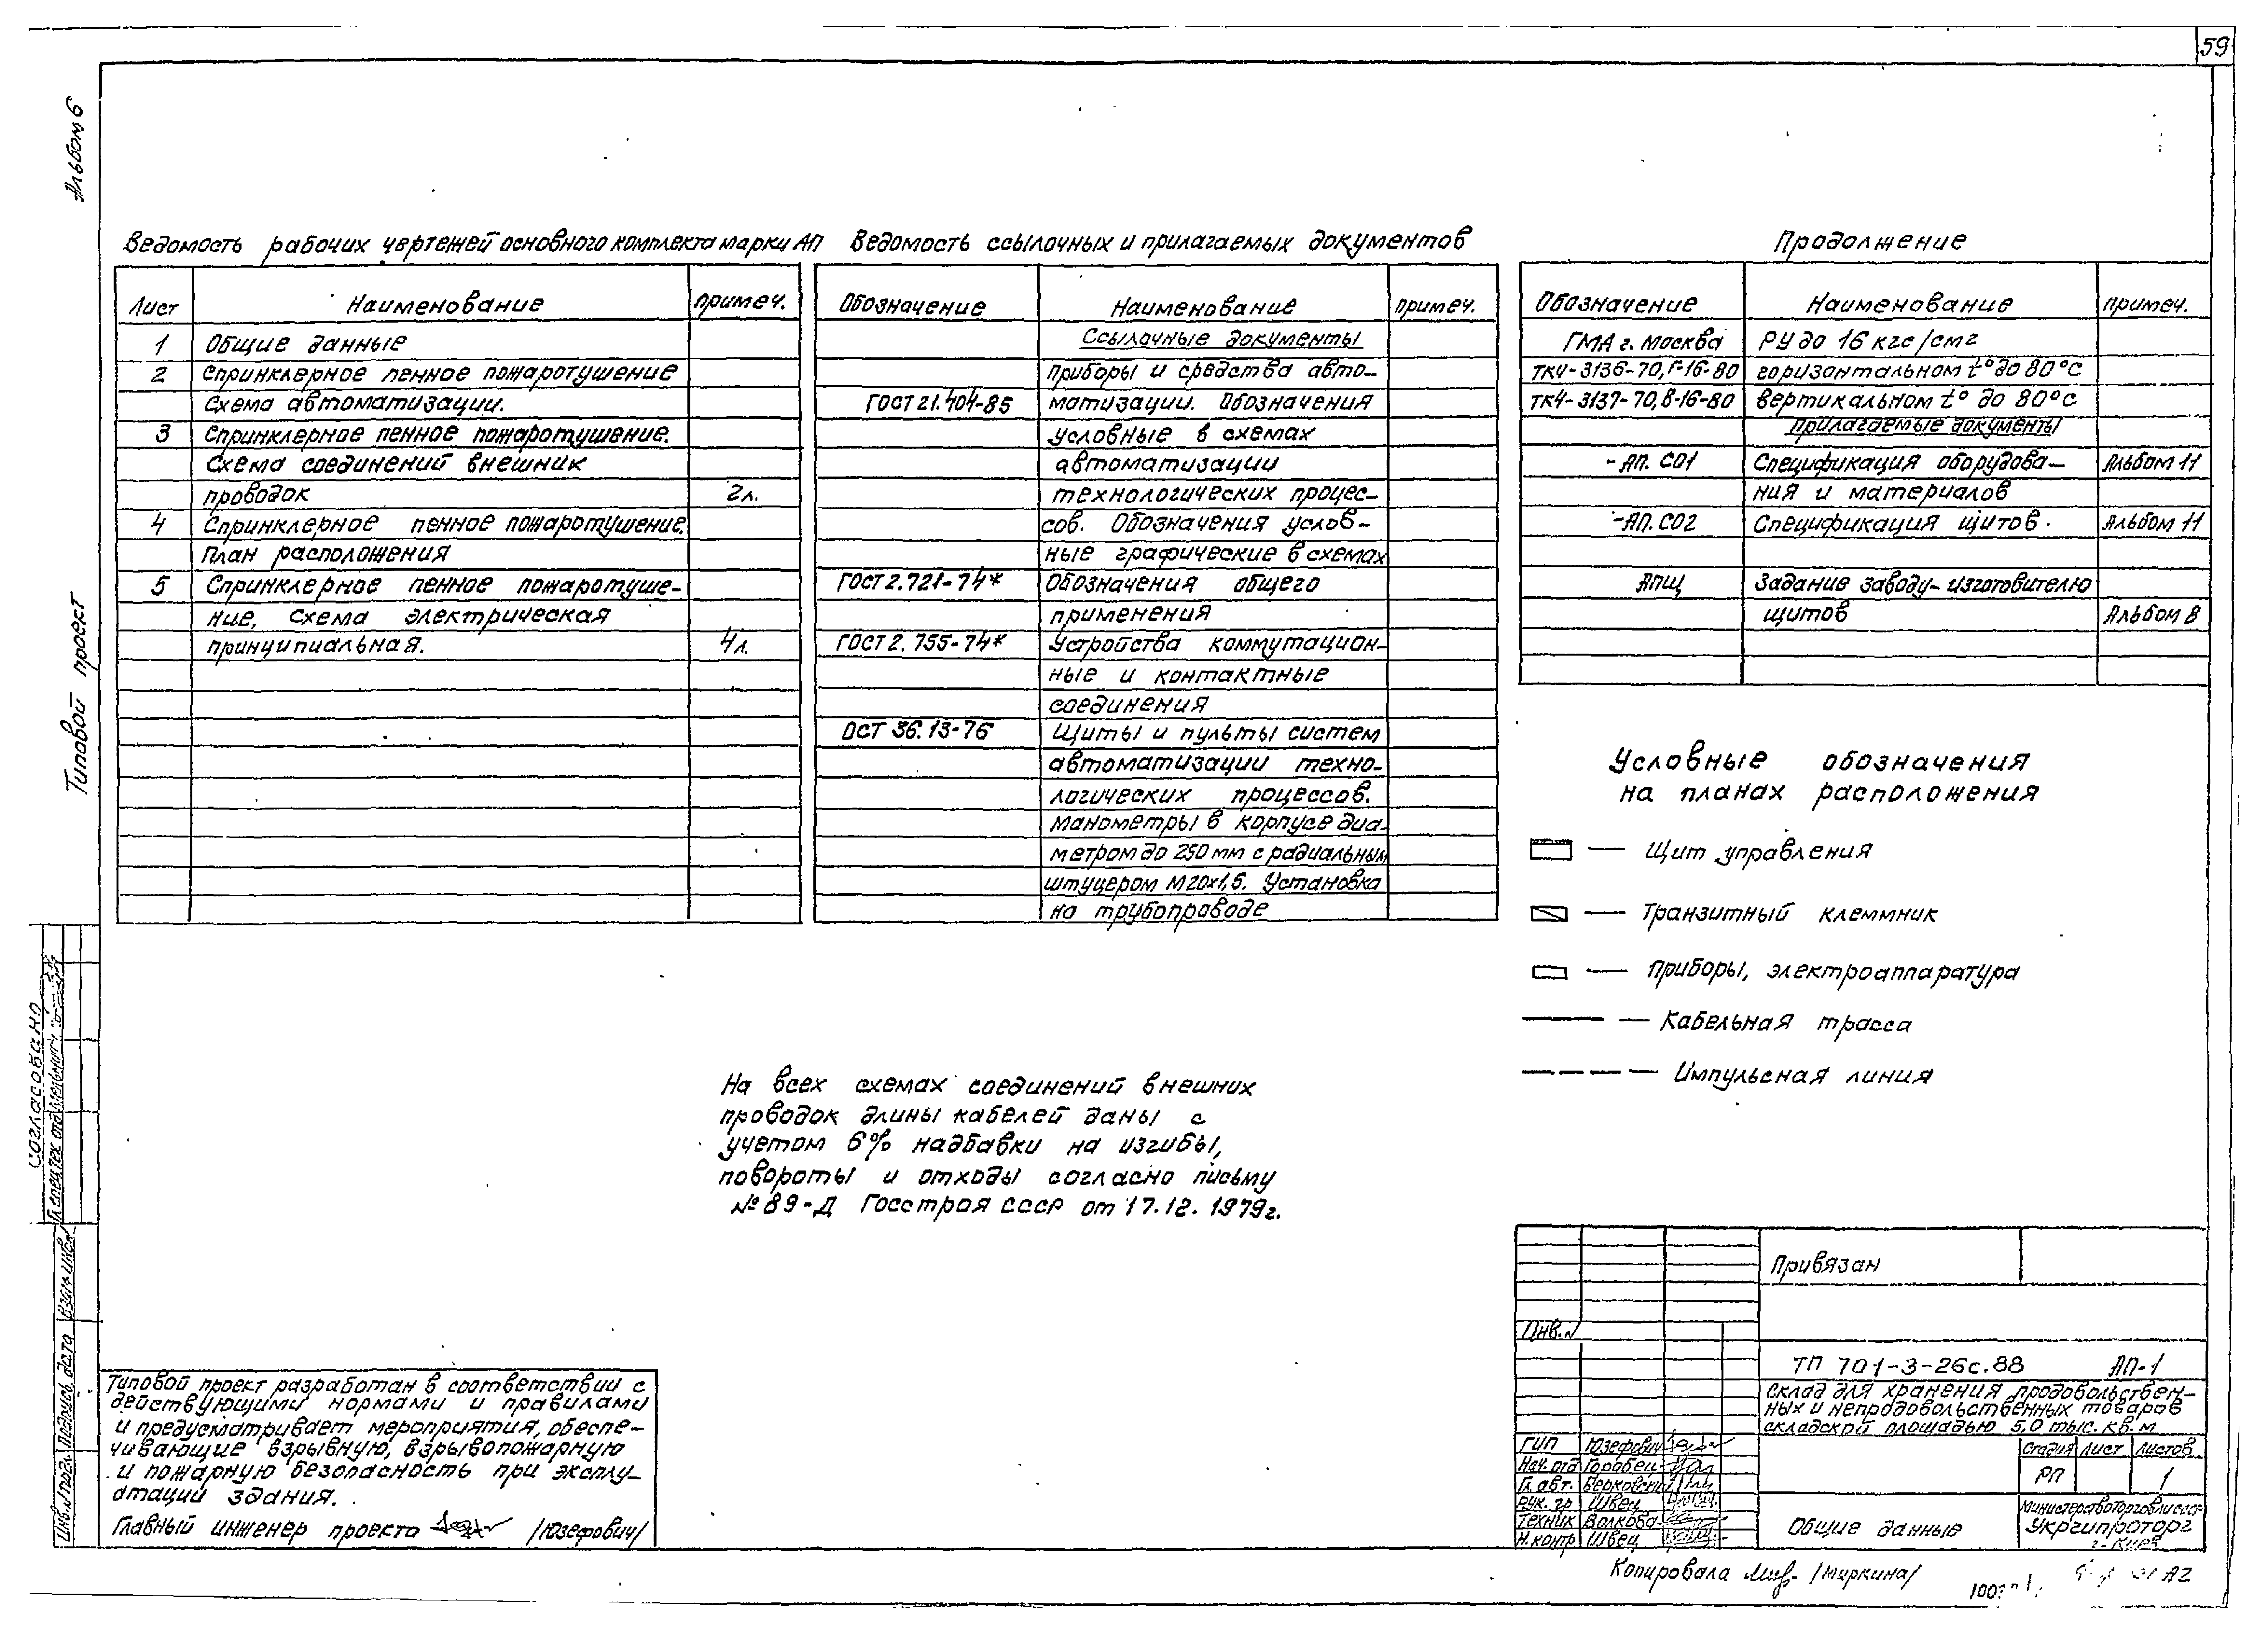 59
Альбом 6
Типовой проект
Ведомость рабочих чертежей основного комплекта марки АП
Лист Наименование примеч.
1 Общие данные
2 Спринклерное пенное пожаротушение
Схема автоматизации.
3 Спринклерное пенное пожаротушение.
Схема соединений внешник
проводок 2л.
4 Спринклерное пенное пожаротушение.
План расположения
5 Спринклерное пенное пожаротуше-
ние, Схема электрическая
принципиальная. 4л.
Ведомость ссылочных и прилагаемых документов
Обозначение Наименование примеч.
Ссылочные документы
приборы и средства авто-
ГОСТ 21.404-85 матизации. Обозначения
условные в схемах
автоматизации
технологических процес-
сов. Обозначения услов-
ные графические в схемах
ГОСТ 2.721-74* Обозначения общего
применения
ГОСТ 2.755-74* Устройства коммутацион-
ные и контактные
соединения
ОСТ 36.13-76 Щиты и пульты систем
автоматизации техно-
логических процессов.
манометры в корпусе диа-
метром до 250 мм с радиальным
штуцером М20х1,5. Установка
на трубопроводе
Продолжение
Обозначение Наименование примеч.
ГМА г. Москва РУ до 16 кгс/см2
ТК4-3136-70, Г-16-80 горизонтальном t° до 80°С
ТК4-3137-70, В-16-80 вертикальном t° до 80°С
Прилагаемые документы
-АП. СО1 Спецификация оборудова- Альбом 11
ния и материалов
-АП. СО2 Спецификация щитов. Альбом 11
АПЩ Задание заводу-изготовителю
щитов Альбом 8
Условные обозначения
на планах расположения
— Щит управления
— Транзитный клеммник
— Приборы, электроаппаратура
— Кабельная трасса
— Импульсная линия
На всех схемах соединений внешних
проводок длины кабелей даны с
учетом 6% надбавки на изгибы,
повороты и отходы согласно письму
№ 89-Д Госстроя СССР от 17.12.1979г.
Согласовано
Гл. спец. тех. отд.
Инв. № подл. Подпись, дата Взам. инв. №
Типовой проект разработан в соответствии с
действующими нормами и правилами
и предусматривает мероприятия, обеспе-
чивающие взрывную, взрывопожарную
и пожарную безопасность при эксплу-
атации здания.
Главный инженер проекта /Юзефович/
Привязан
Инв. №
ТП 701-3-26с.88 АП-1
Склад для хранения продовольствен-
ных и непродовольственных товаров
складской площадью 5,0 тыс. кв. м
ГИП Юзефович
Нач. отд Горобец
Гл. авт. Берковский
Рук. гр Швец
Техник Волкова
Н. контр Швец
Стадия Лист Листов
РП 1
Общие данные
Министерство торговли СССР
Укргипроторг
г. Киев
Копировала /Миркина/
А2